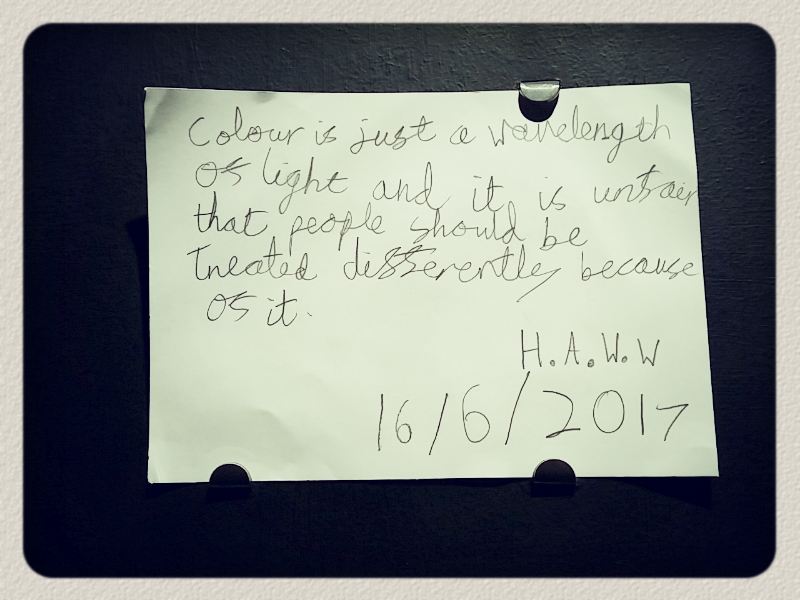 Colour is just a wavelength
of light and it is unfair
that people should be
Treated differently because
of it.
H.A.W.W
16/6/2017